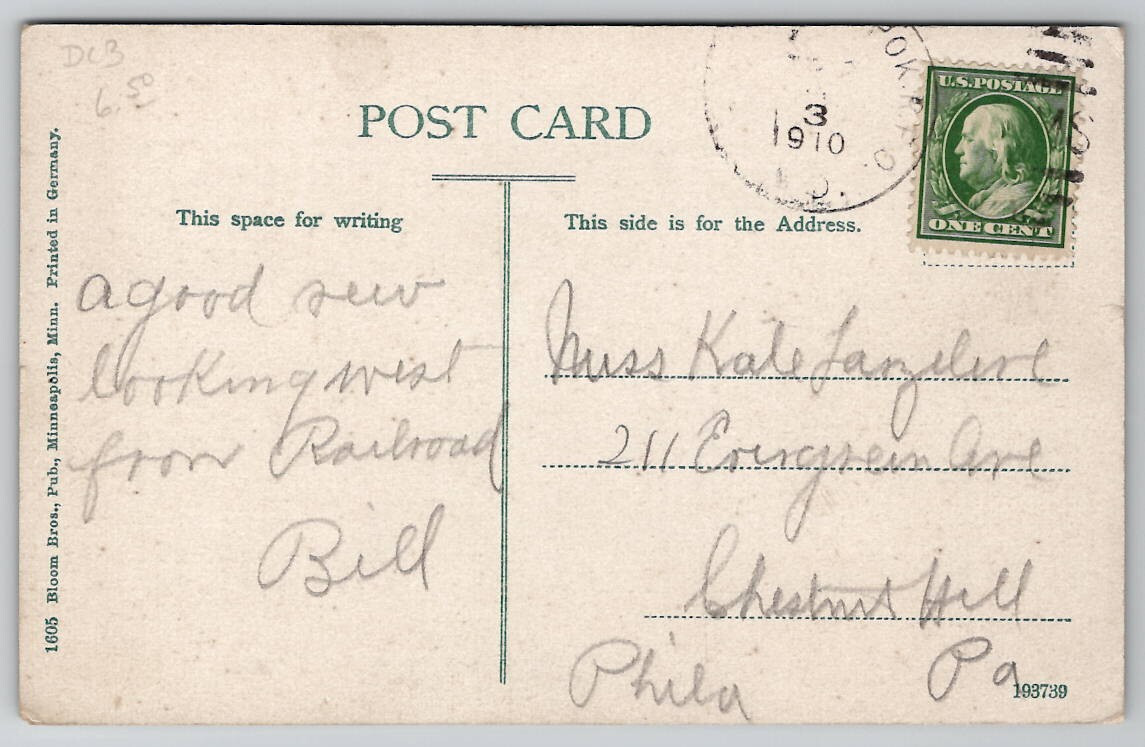 DC3
6.50
POST CARD
POK. R.P.O.
3
1910
U.S. POSTAGE
ONE CENT
This space for writing
This side is for the Address.
a good view
looking west
from Railroad
Bill
Miss Kate
211 Evergreen Ave
Chestnut Hill
Phila Pa
193739
1605 Bloom Bros., Pub., Minneapolis, Minn. Printed in Germany.